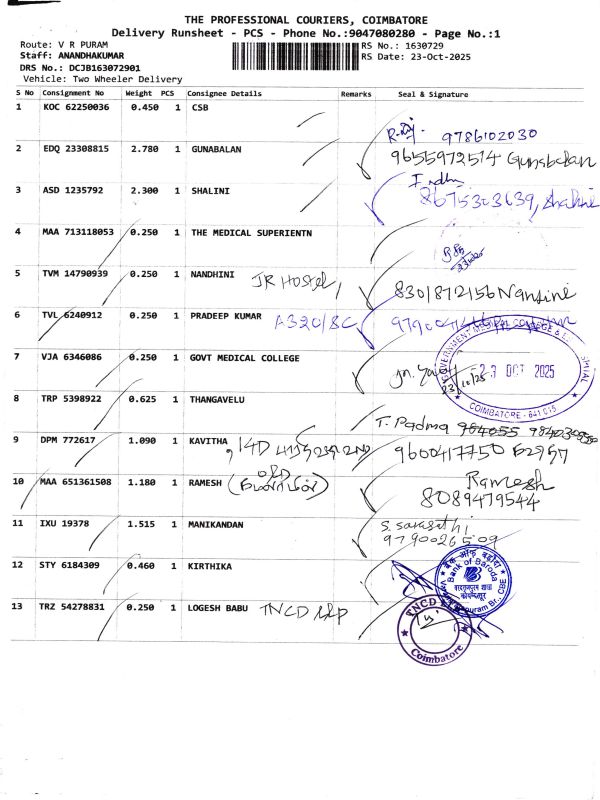 THE PROFESSIONAL COURIERS, COIMBATORE
Delivery Runsheet - PCS - Phone No.:9047080280 - Page No.:1
Route: V R PURAM
RS No.: 1630729
Staff: ANANDHAKUMAR
RS Date: 23-Oct-2025
DRS No.: DCJB163072901
Vehicle: Two Wheeler Delivery
S No Consignment No Weight PCS Consignee Details Remarks Seal & Signature
1 KOC 62250036 0.450 1 CSB
9786102030
2 EDQ 23308815 2.780 1 GUNABALAN
9655972514 Gunabalan
3 ASD 1235792 2.300 1 SHALINI
Indhu
8675303639, Shalini
4 MAA 713118053 0.250 1 THE MEDICAL SUPERIENTN
5 TVM 14790939 0.250 1 NANDHINI JR Hostel,
8301872156 Nandini
6 TVL 6240912 0.250 1 PRADEEP KUMAR A320/8C
7 VJA 6346086 0.250 1 GOVT MEDICAL COLLEGE
GOVERNMENT MEDICAL COLLEGE &
23 OCT 2025
23/10/25
COIMBATORE - 641 015
8 TRP 5398922 0.625 1 THANGAVELU
T. Padma 9840309
9 DPM 772617 1.090 1 KAVITHA 14D
9600417750
10 MAA 651361508 1.180 1 RAMESH
Ramesh
8089479544
11 IXU 19378 1.515 1 MANIKANDAN
S. Sarasathi
9790026509
12 STY 6184309 0.460 1 KIRTHIKA
बैंक ऑफ़ बड़ौदा
Bank of Baroda
वरदराजपुरम शाखा
कोयम्बतूर
puram Br., CBE
13 TRZ 54278831 0.250 1 LOGESH BABU TNCD
TNCD
Coimbatore